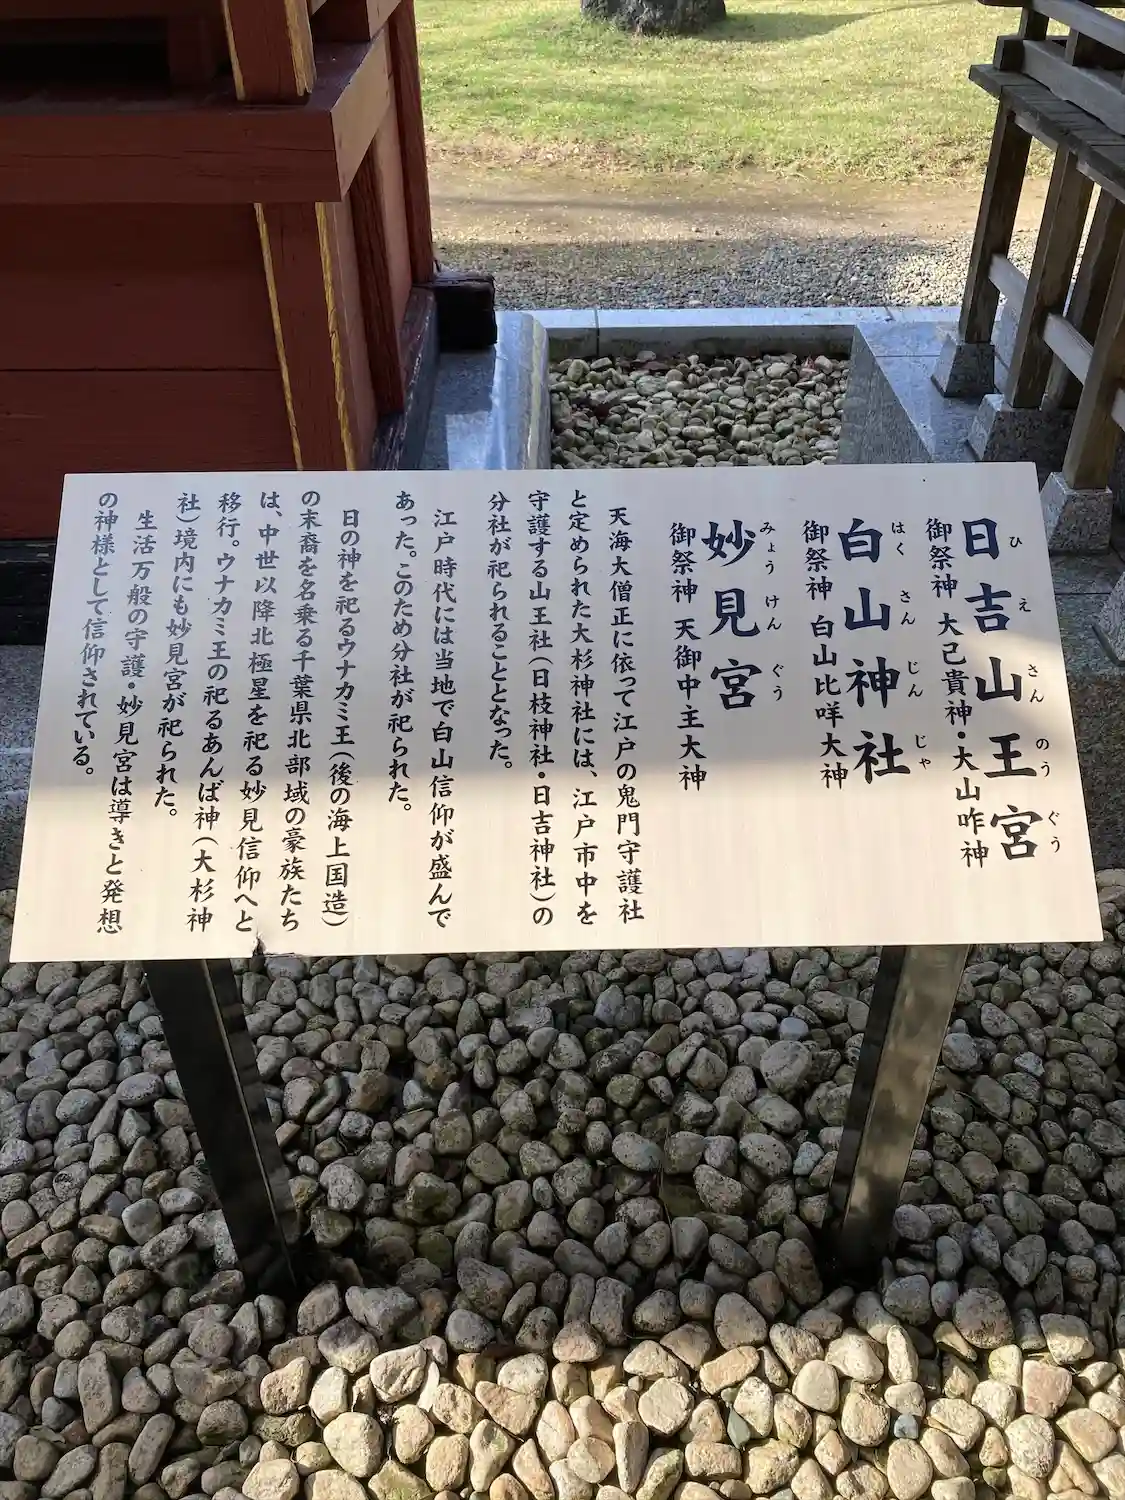 日吉山王宮
ひえさんのうぐう
御祭神 大己貴神・大山咋神
白山神社
はくさんじんじゃ
御祭神 白山比咩大神
妙見宮
みょうけんぐう
御祭神 天御中主大神
天海大僧正に依って江戸の鬼門守護社
と定められた大杉神社には、江戸市中を
守護する山王社(日枝神社・日吉神社)の
分社が祀られることとなった。
江戸時代には当地で白山信仰が盛んで
あった。このため分社が祀られた。
日の神を祀るウナカミ王(後の海上国造)
の末裔を名乗る千葉県北部域の豪族たち
は、中世以降北極星を祀る妙見信仰へと
移行。ウナカミ王の祀るあんば神(大杉神
社)境内にも妙見宮が祀られた。
生活万般の守護・妙見宮は導きと発想
の神様として信仰されている。